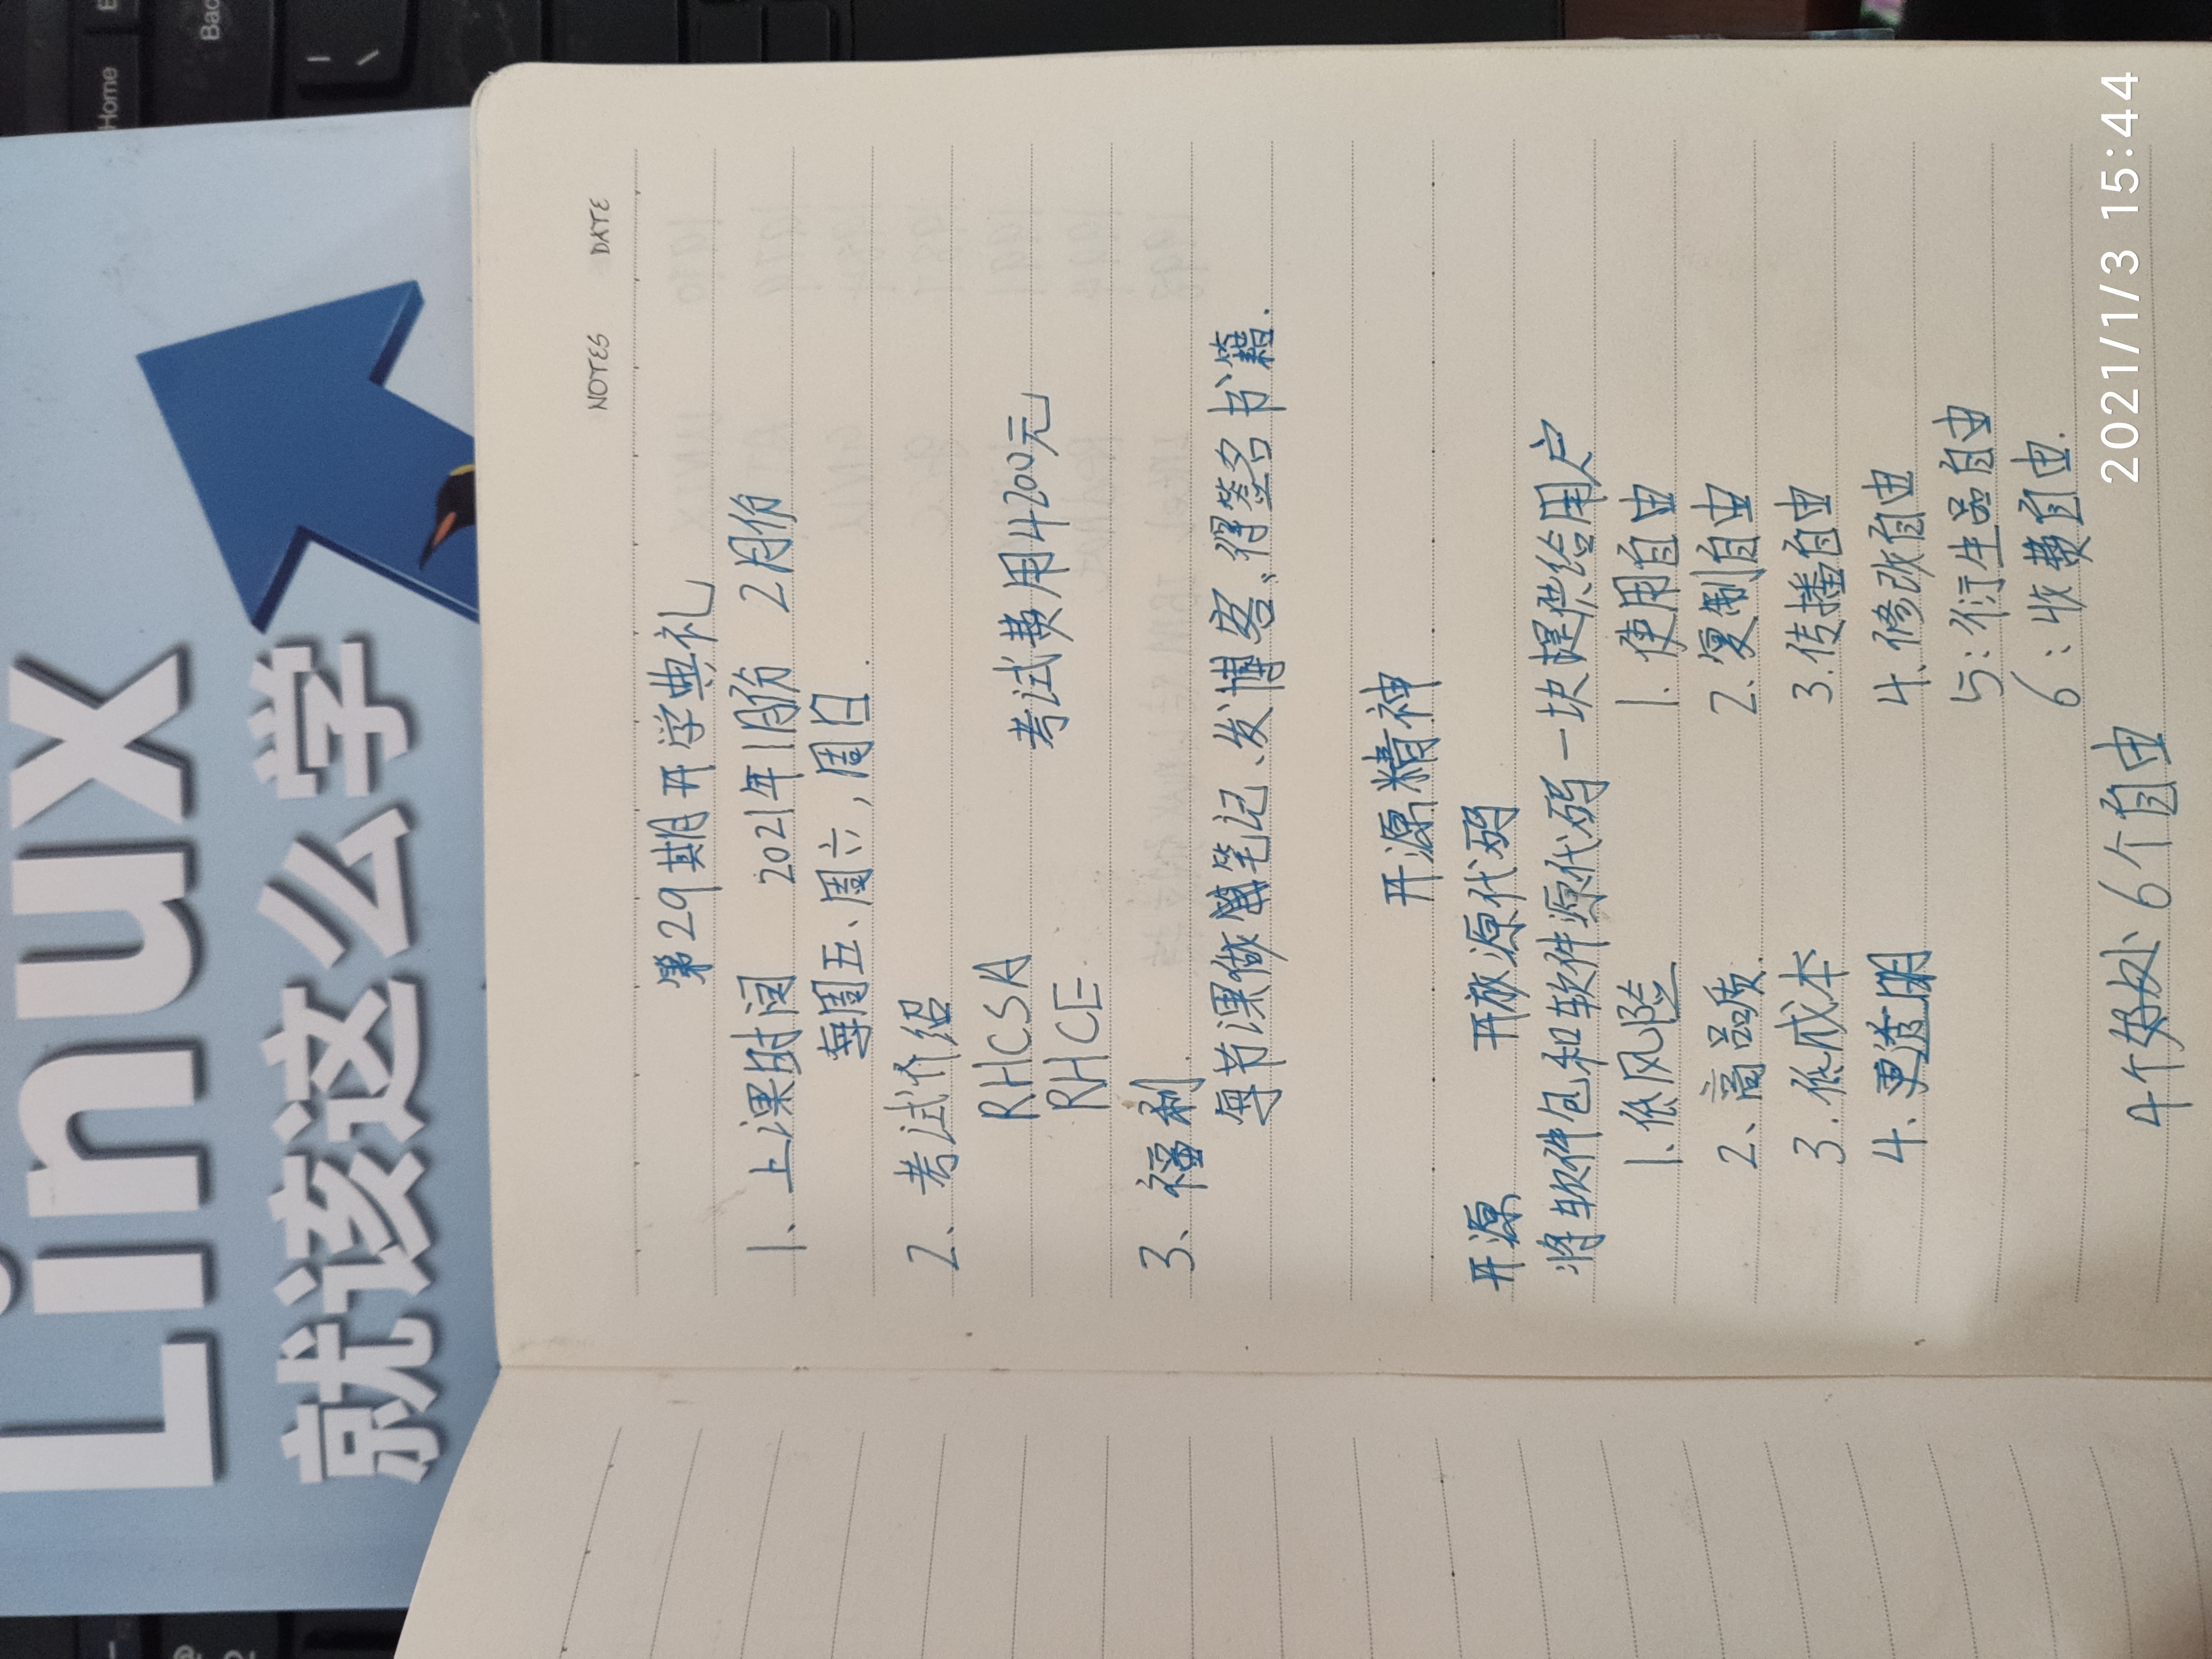 Linux
就该这么学
Home
NOTES DATE
第29期开学典礼
1、上课时间 2021年1月份 2月份
每周五、周六,周日.
2、考试介绍
RHCSA
RHCE 考试费用4200元
3、福利
每节课做笔记、发博客、得签名书籍.
开源精神
开源 开放源代码
将软件包和软件源代码一块提供给用户
1.低风险 1.使用自由
2、高品质. 2.复制自由
3.低成本 3.传播自由
4.更透明 4.修改自由
5:衍生品自由
6:收费自由.
4个好处 6个自由
2021/1/3 15:44